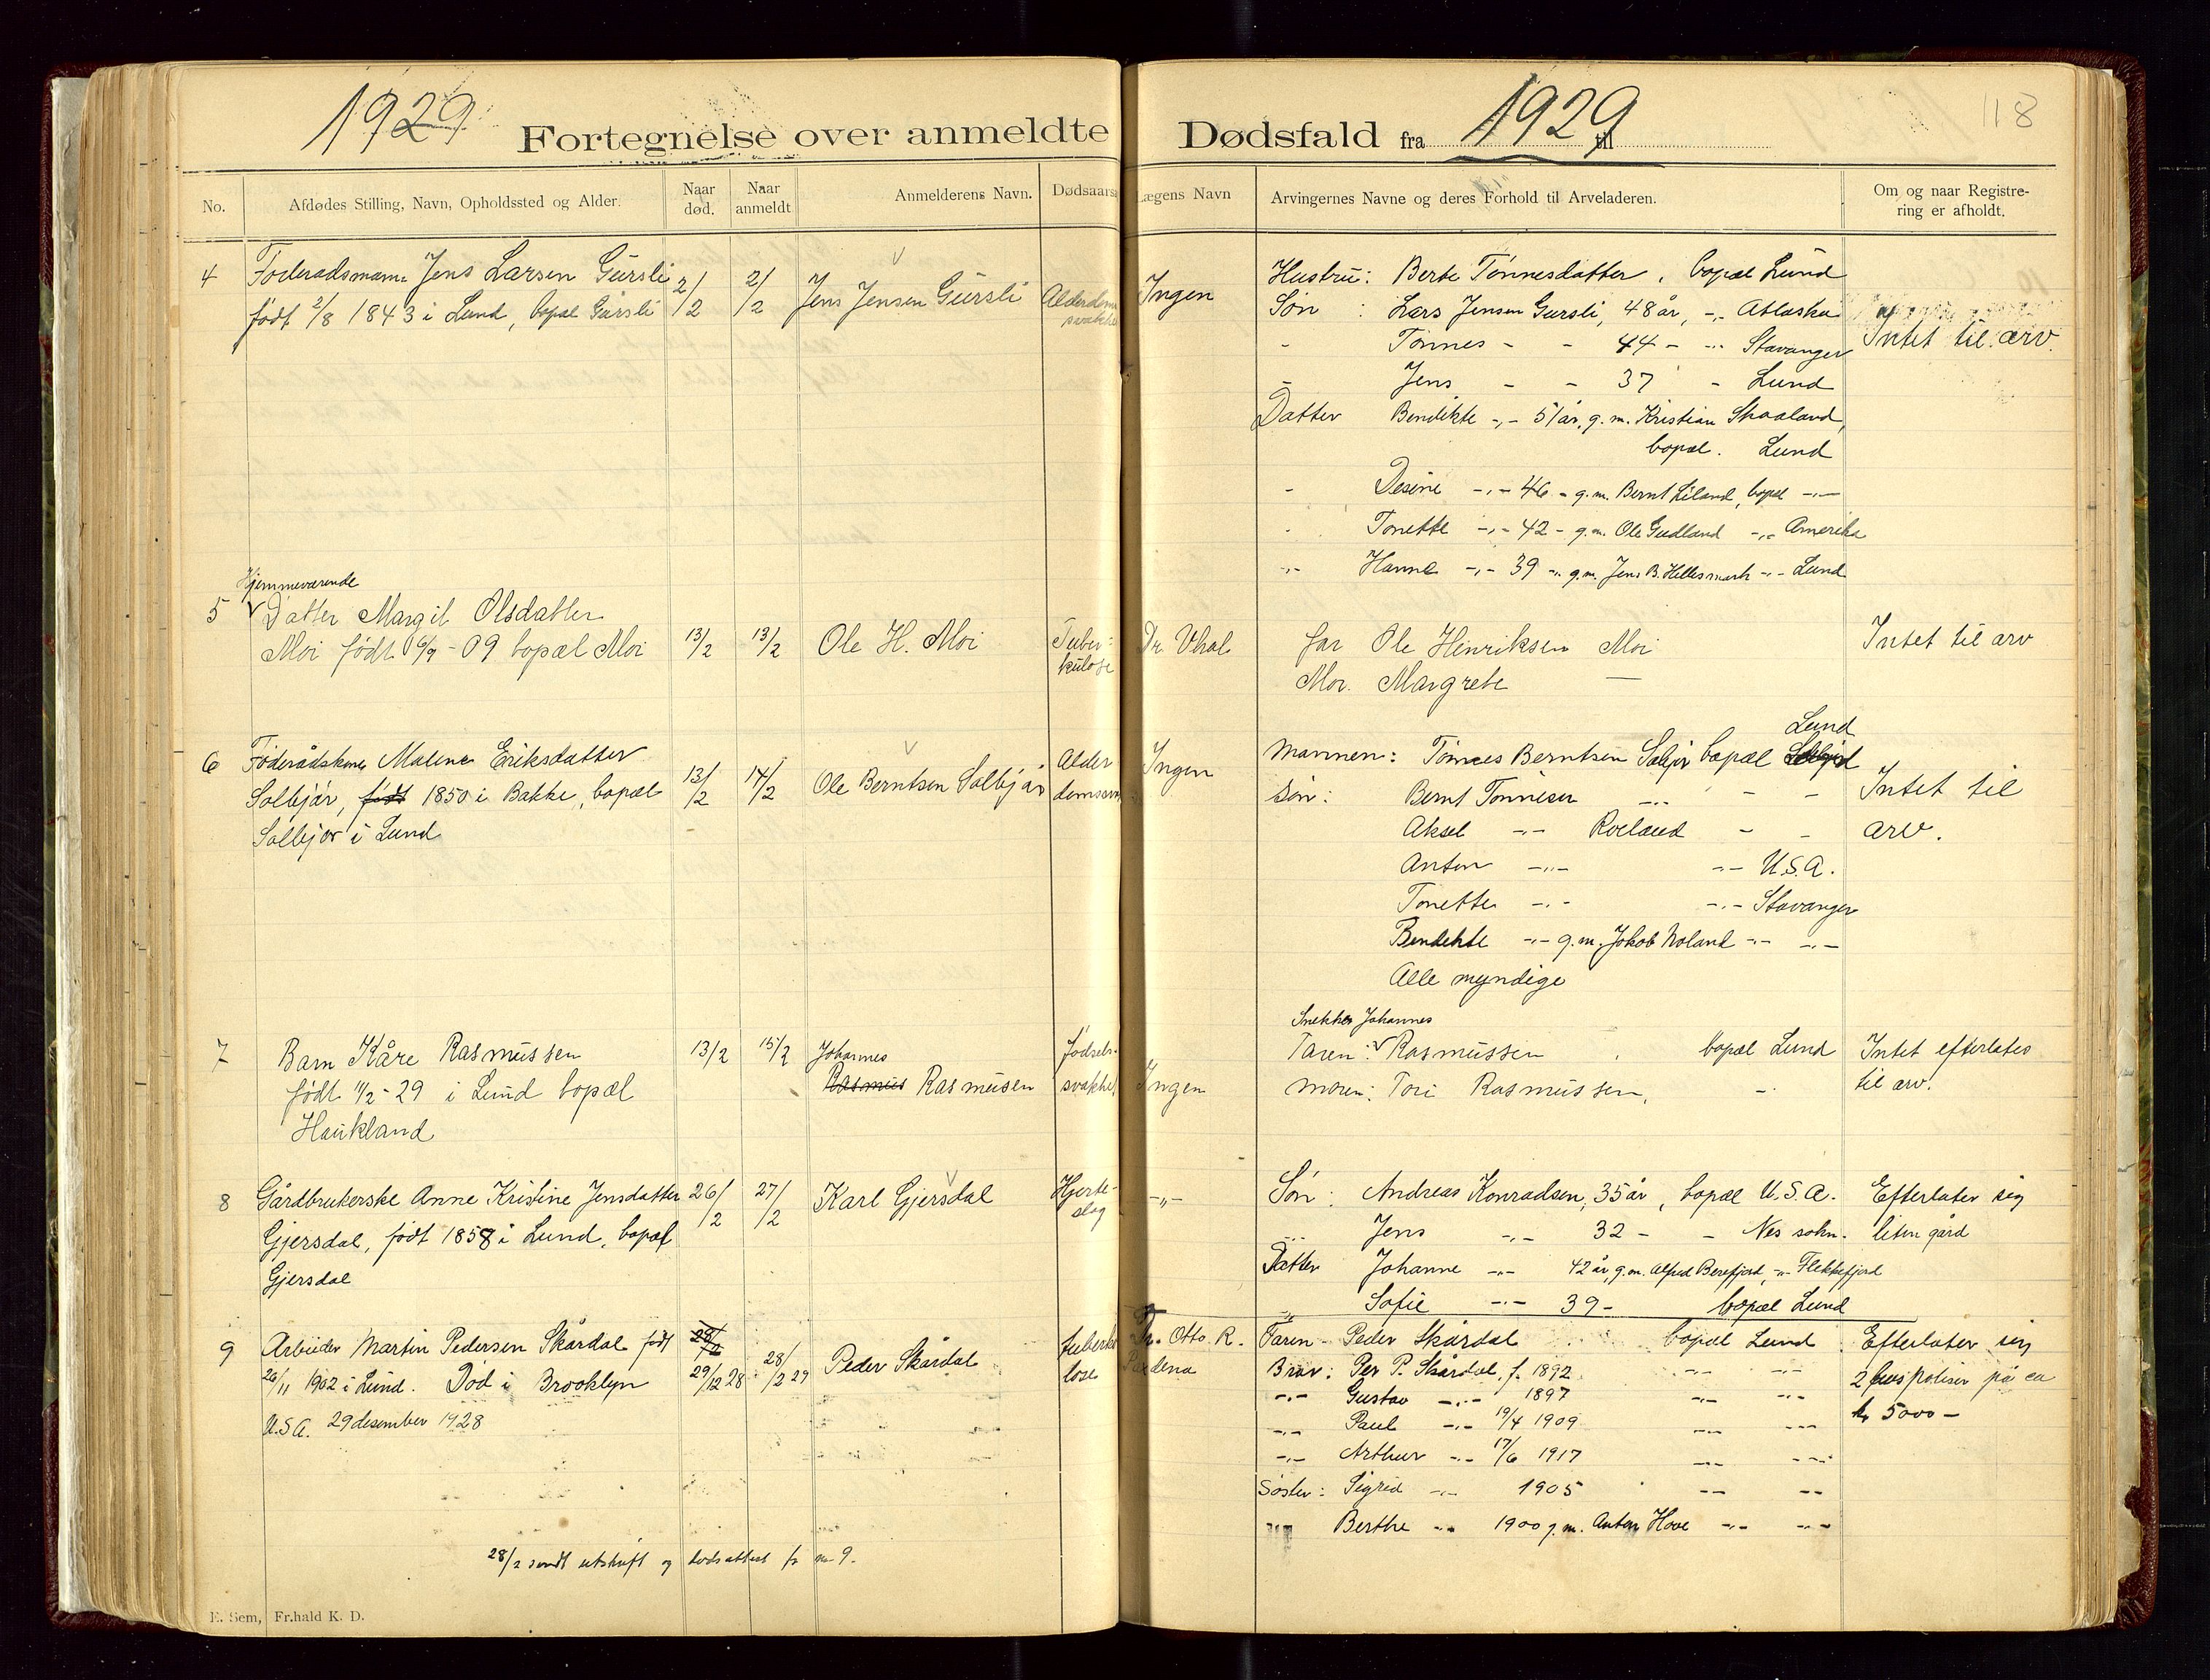 1929
Fortegnelse over anmeldte Dødsfald fra 1929 til
118
No.
Afdødes Stilling, Navn, Opholdssted og Alder.
Naar død.
Naar anmeldt
Anmelderens Navn.
Dødsaars
Lægens Navn
Arvingernes Navne og deres Forhold til Arveladeren.
Om og naar Registre-
ring er afholdt.
4 Føderadsmann Jens Larsen Gursli 2/2 2/2 Jens Jensen Gursli Ingen
født 2/8 1843 i Lund, bopæl Gursli
Hustru: Berte Tønnesdatter, bopæl Lund
Søn : Lars Jensen Gursli, 48 år, -"- Atlaska
- Tønnes - - 44 - -"- Stavanger
- Jens - - 37 - Lund
Datter Bendikte -"- 51 år, g.m. Kristian Skaaland,
bopæl. Lund
- Desine -"- 46 - g.m. Bernt Liland, bopæl -"-
- Tonette -"- 42 - g.m. Ole Gudland -"- Amerika
-"- Hanne -"- 39 -"- g.m. Jens B. Hellesmark -"- Lund
Intet til arv.
Hjemmeværende
5 Datter Margit Olsdatter
Moi født 6/9 - 09 bopæl Moi 13/2 13/2 Ole H. Moi Tuber-
kulose
Dr. Vhal
far Ole Henriksen Moi
Mor. Margrete —
Intet til arv
6 Føderådskone Malene Eriksdatter
Solbjør, født 1850 i Bakke, bopæl
Solbjør i Lund
13/2 14/2 Ole Berntsen Solbjør Alder
Ingen
Lund
Mannen: Tønnes Berntsen Solbjør bopæl
Søn: Bernt Tønnesen -"- - -
Aksel -"- Roeland - -
Anton -"- -"- U.S.A.
Tonette -"- -"- Stavanger
Bendekte -"- g.m. Jokob Moland -"- -"-
Alle myndige
Intet til
arv.
7 Barn Kåre Rasmussen 13/2 15/2 Johannes
født 11/2 - 29 i Lund bopæl Rasmus Rasmusen
Haukland
fødsels-
svakhet
Ingen
Snekker Johannes
Faren: Rasmussen bopæl Lund
moren: Tori Rasmussen, -"-
Intet efterlates
til arv.
8 Gårdbrukerske Anne Kristine Jensdatter 26/2 27/2 Karl Gjersdal Hjerte-
slag -"-
Gjersdal, født 1858 i Lund, bopæl
Gjersdal
Søn: Andreas Konradsen, 35 år, bopæl U.S.A.
-"- Jens -"- 32 - - Nes sokn.
Datter Johanne -"- 42 år, g.m. Alfred Berefjord, -"- Flekkefjord
-"- Sofie -"- 39 - bopæl Lund
Efterlater sig
liten gård
9 Arbeider Martin Pedersen Skårdal født 28/2
20/11 1902 i Lund. Død i Brooklyn 29/12 28 28/2 29 Peder Skårdal
U.S.A. 29 desember 1928
tuberku
lose
Dr. Otto. R.
Faren - Peder Skårdal bopæl Lund
Bror: Per P. Skårdal, f. 1892 -"- -"-
-"- Gustav -"- 1897 -"- -"-
-"- Paul -"- 19/4 1909 -"- -"-
-"- Arthur -"- 17/6 1917 -"- -"-
Søster: Sigrid -"- 1905 -"- -"-
-"- Berthe -"- 1900 g.m. Anton Hove -"- -"-
Efterlater sig
2 livspoliser på ca
kr 5000 -
28/2 sendt utskrift og dødsattest for nr 9.
E. Sem, Fr.hald K. D.